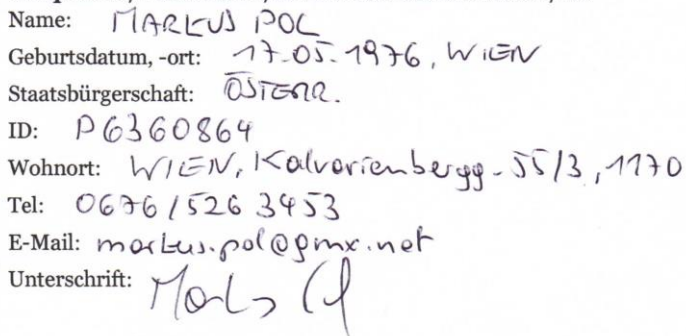 Name: MARKUS POL
Geburtsdatum, -ort: 17.05.1976, WIEN
Staatsbürgerschaft: ÖSTERR.
ID: P6360864
Wohnort: WIEN, Kalvarienbergg. 55/3, 1170
Tel: 0676/526 3453
E-Mail: markus.pol@gmx.net
Unterschrift: